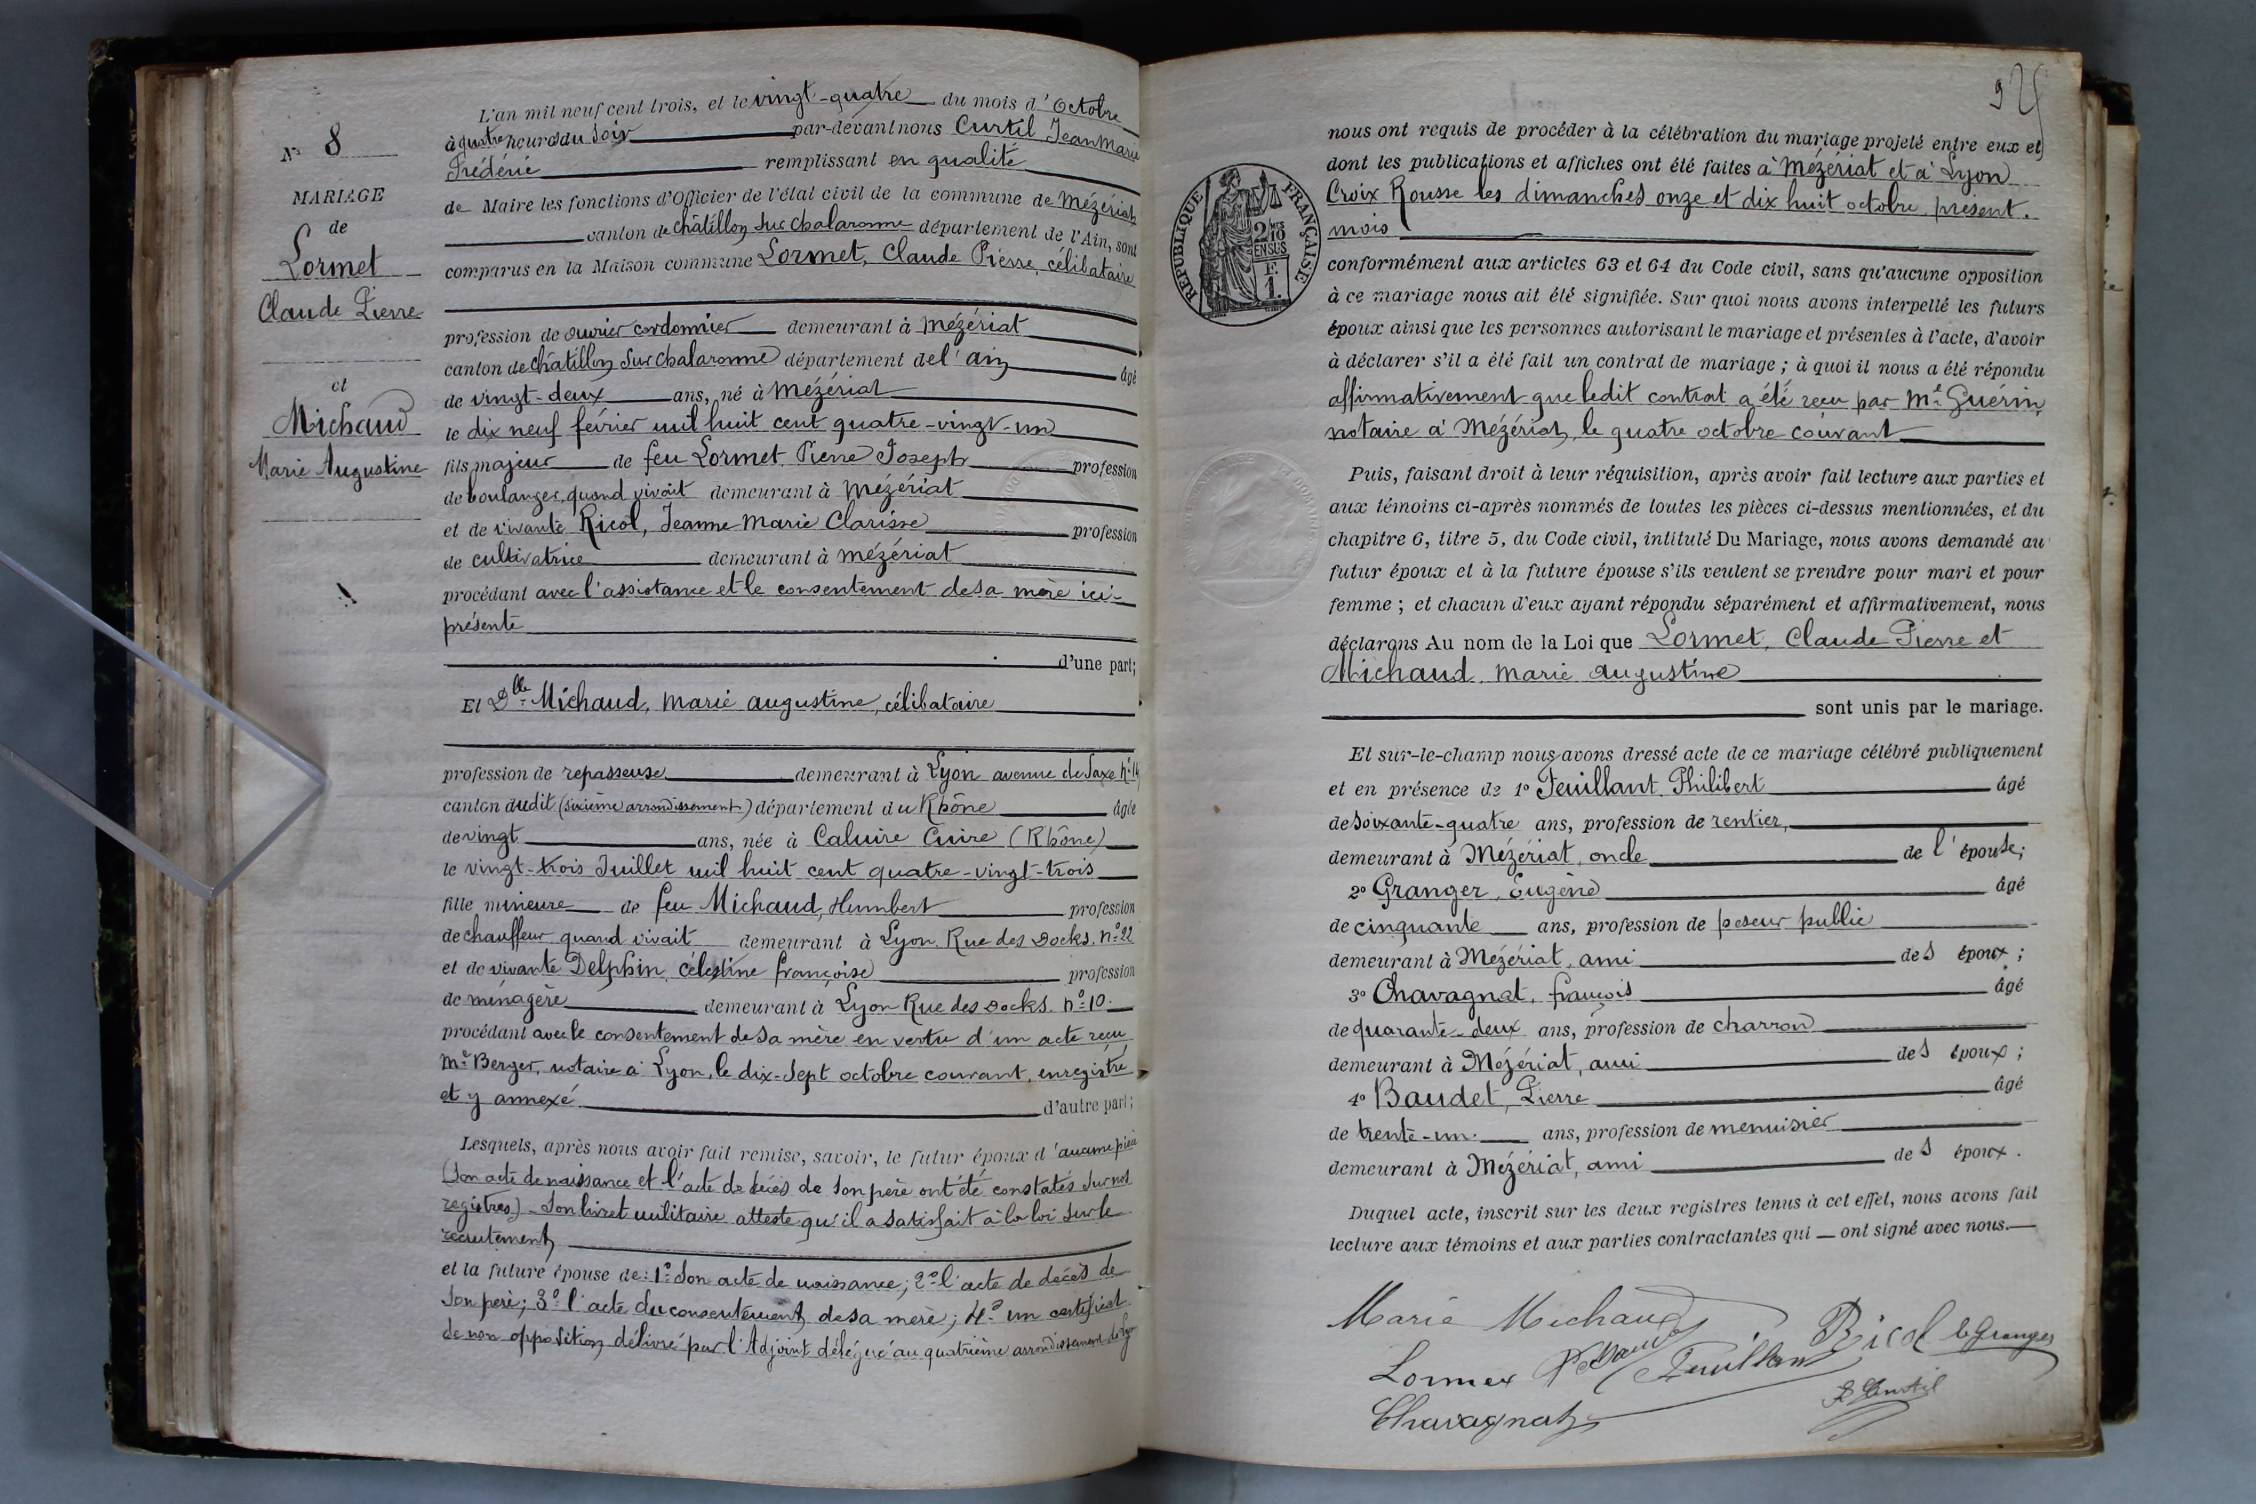 N° 8
MARIAGE
de
Lormet
Claude Pierre
et
Michaud
Marie Augustine
L'an mil neuf cent trois, et le vingt-quatre du mois d'Octobre
à quatre heures du soir par-devant nous Curtil Jean Marie
Frédéric remplissant en qualité
de Maire les fonctions d'Officier de l'état civil de la commune de Mézériat
canton de Châtillon sur Chalaronne département de l'Ain, sont
comparus en la Maison commune Lormet, Claude Pierre, célibataire
profession de ouvrier cordonnier demeurant à Mézériat
canton de Châtillon sur Chalaronne département de l'ain âgé
de vingt-deux ans, né à Mézériat
le dix neuf février mil huit cent quatre-vingt-un
fils majeur de feu Lormet Pierre Joseph profession
de boulanger, quand vivait demeurant à Mézériat
et de vivante Ricol, Jeanne Marie Clarisse profession
de cultivatrice demeurant à mézériat
procédant avec l'assistance et le consentement de sa mère ici-
présente
d'une part;
Et Dlle Michaud, Marie augustine, célibataire
profession de repasseuse demeurant à Lyon avenue de Saxe n° 14
canton dudit (sixième arrondissement) département du Rhône âgée
de vingt ans, née à Caluire Cuire (Rhône)
le vingt-trois Juillet mil huit cent quatre-vingt-trois
fille mineure de feu Michaud, Humbert profession
de chauffeur quand vivait demeurant à Lyon Rue des Docks. n° 22
et de vivante Delphin, célestine françoise profession
de ménagère demeurant à Lyon Rue des Docks. n° 10.
procédant avec le consentement de sa mère en vertu d'un acte reçu
Me Berger, notaire à Lyon, le dix-sept octobre courant, enregistré
et y annexé d'autre part;
Lesquels, après nous avoir fait remise, savoir, le futur époux d'aucune pièce
(son acte de naissance et l'acte de décès de son père ont été constatés sur nos
registres) - Son livret militaire atteste qu'il a satisfait à la loi sur le
recrutement
et la future épouse de: 1° Son acte de naissance; 2° l'acte de décès de
son père; 3° l'acte du consentement de sa mère; 4° un certificat
de non opposition délivré par l'Adjoint délégué au quatrième arrondissement de Lyon
925
RÉPUBLIQUE FRANÇAISE
2 MES
10
EN SUS
F.
1.
nous ont requis de procéder à la célébration du mariage projeté entre eux et
dont les publications et affiches ont été faites à Mézériat et à Lyon
Croix Rousse les dimanches onze et dix huit octobre présent.
mois
conformément aux articles 63 et 64 du Code civil, sans qu'aucune opposition
à ce mariage nous ait été signifiée. Sur quoi nous avons interpellé les futurs
époux ainsi que les personnes autorisant le mariage et présentes à l'acte, d'avoir
à déclarer s'il a été fait un contrat de mariage; à quoi il nous a été répondu
affirmativement que ledit contrat a été reçu par Me Guérin,
notaire à Mézériat, le quatre octobre courant
Puis, faisant droit à leur réquisition, après avoir fait lecture aux parties et
aux témoins ci-après nommés de toutes les pièces ci-dessus mentionnées, et du
chapitre 6, titre 5, du Code civil, intitulé Du Mariage, nous avons demandé au
futur époux et à la future épouse s'ils veulent se prendre pour mari et pour
femme; et chacun d'eux ayant répondu séparément et affirmativement, nous
déclarons Au nom de la Loi que Lormet, Claude Pierre et
Michaud Marie augustine
sont unis par le mariage.
Et sur-le-champ nous avons dressé acte de ce mariage célébré publiquement
et en présence de 1° Feuillant Philibert âgé
de soixante-quatre ans, profession de rentier,
demeurant à Mézériat, oncle de l'épouse;
2° Granger, Eugène âgé
de cinquante ans, profession de peseur public
demeurant à Mézériat, ami des époux;
3° Chavagnat, françois âgé
de quarante-deux ans, profession de charron
demeurant à Mézériat, ami des époux;
4° Baudet, Pierre âgé
de trente-un. ans, profession de menuisier
demeurant à Mézériat, ami des époux.
Duquel acte, inscrit sur les deux registres tenus à cet effet, nous avons fait
lecture aux témoins et aux parties contractantes qui ont signé avec nous.
Marie Michaud Ricol E Granger
Lormet Feuillant
Chavagnat Curtil